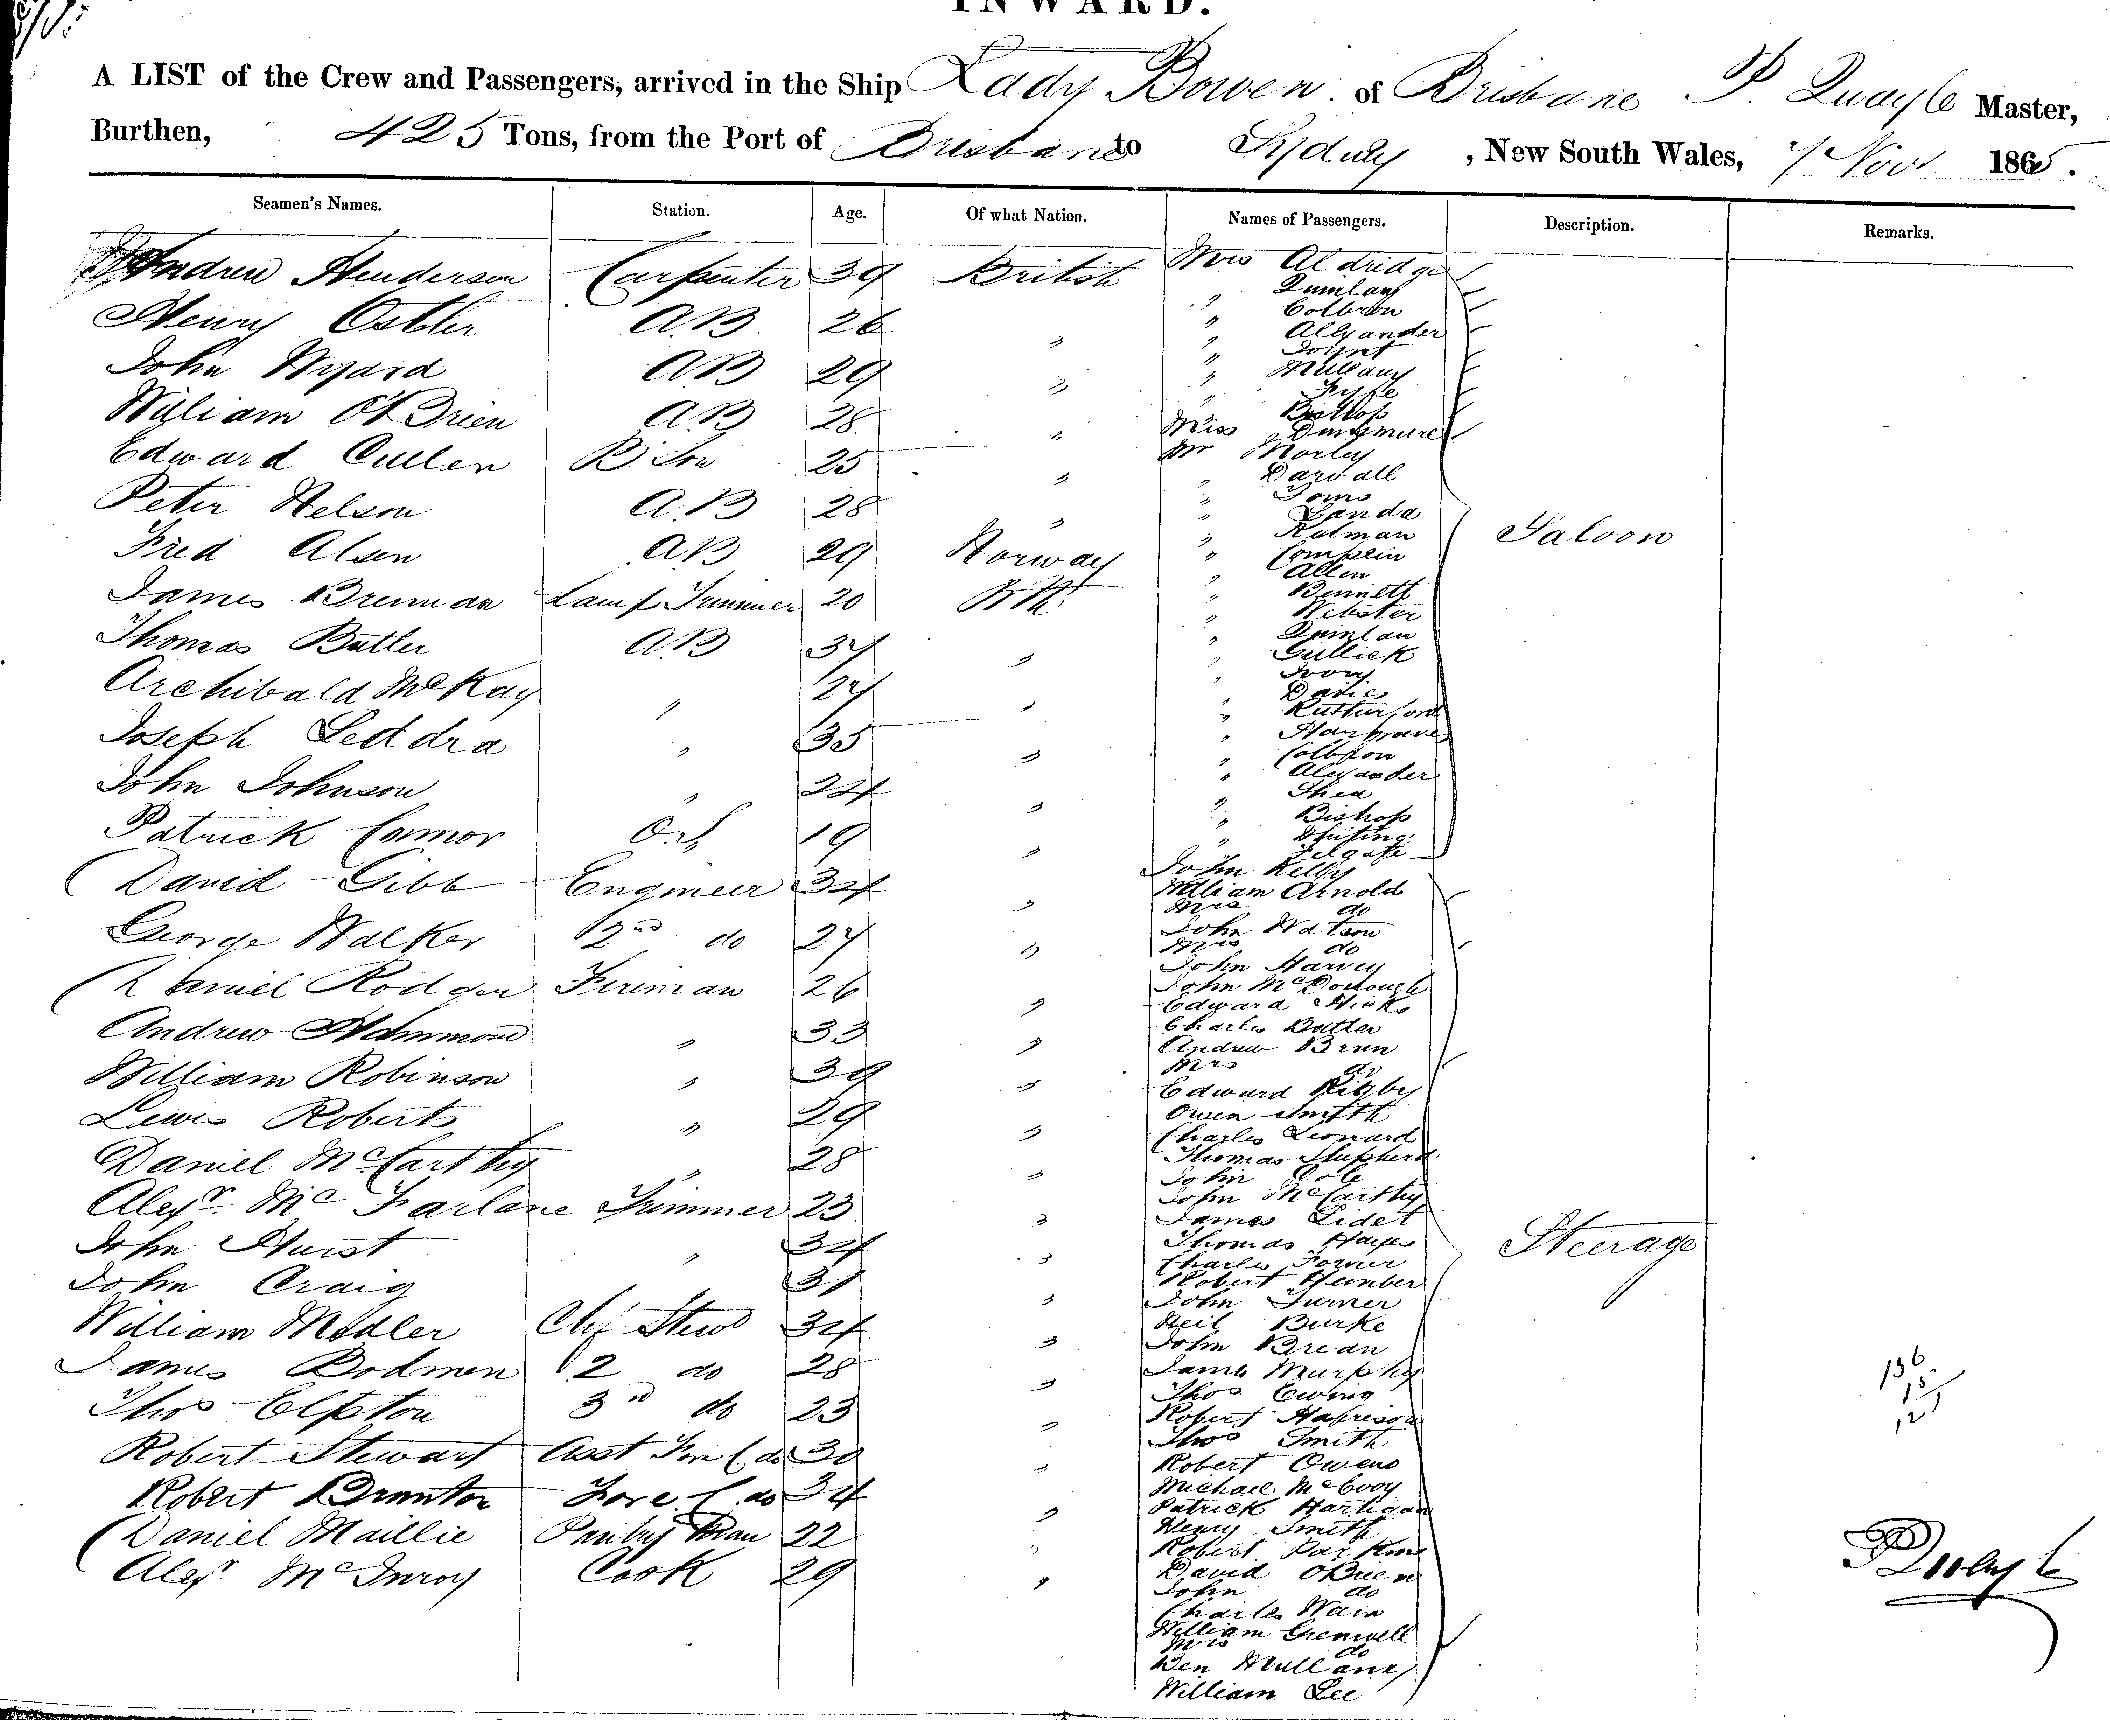 INWARD.
A LIST of the Crew and Passengers, arrived in the Ship Lady Bowen of Brisbane P. Quayle Master,
Burthen, 425 Tons, from the Port of Brisbane to Sydney, New South Wales, 7 Nov 1865.
Seamen's Names. Station. Age. Of what Nation. Names of Passengers. Description. Remarks.
Andrew Henderson Carpenter 39 British
Henry Ostler AB 26 "
John Wyard AB 29 "
William O'Brien AB 28 "
Edward Cullen 25 "
Peter Nelson A.B 28 "
Fred Alsen AB 29 Norway
James Brennan Lamp Trimmer 20
Thomas Butler AB 37 "
Archibald McKay " 27 "
Joseph Leddra " 35 "
John Johnson " 24 "
Patrick Connor 19 "
David Gibb Engineer 34 "
George Walker 2nd do 27 "
Daniel Rodger Fireman 26 "
Andrew Hammond " 33 "
William Robinson " 39 "
Lewis Roberts " 29 "
Daniel McCarthy " 28 "
Alexr McFarlane Trimmer 23 "
John Hurst " 34 "
John Craig 31 "
William Medler Chf Stewd 34 "
James Bodmen 2 do 28 "
Thos Elpton 3rd do 23 "
Robert Stewart Asst For C do 30 "
Robert Brunton Fore C do 34 "
Daniel Maillie Pantry Man 22 "
Alexr McInroy Cook 29 "
Mrs Aldridge
" Quinlan
" Colbron
" Allyander
" Mullany
" Fyffe
" Bishop
Miss Dunsmure
Mr Morley
" Darvall
" Toms
" Landa
" Kolman
" Complin
" Allen
" Bennett
" Webster
" Quinlan
" Gullick
" Ivory
" Davies
" Rutherford
" Hargrave
" Colbron
" Alexander
" Shea
" Bishop
" Whiting
Saloon
John Kelly
William Arnold
Mrs do
John Watson
Mrs do
John Harvey
John McDonough
Edward Hicks
Charles Butler
Andrew Brun
Mrs do
Edward Rigby
Owen Smith
Charles Leonard
Thomas Shepherd
John Cole
John McCarthy
James Lidet
Thomas Hayes
Charles Forner
Robert Humber
John Turner
Neil Burke
John Brean
James Murphy
Thos Ewing
Robert Harrison
Thos Smith
Robert Owens
Michael McEvoy
Patrick Hartigan
Henry Smith
Robert Parkins
David O'Brien
John do
Charles Wain
William Grenwell
Mrs do
Ben Mullany
William Lee
Steerage
136
15
121
P Quayle